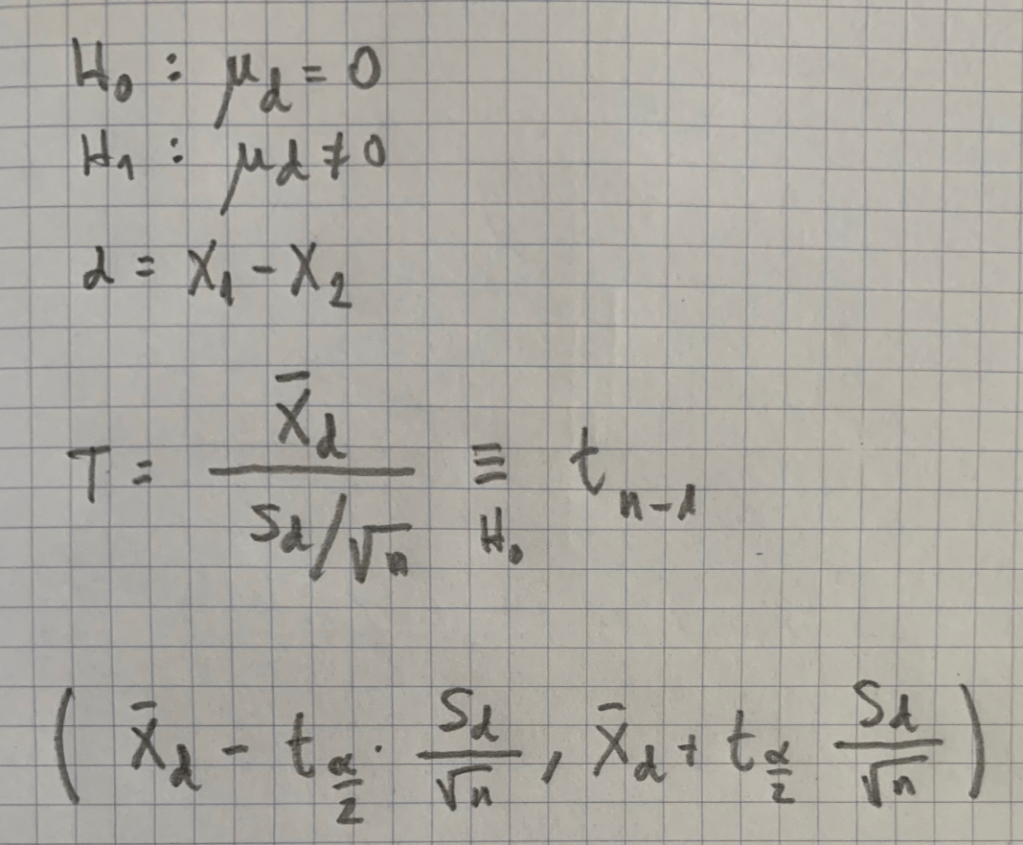 H₀ : μ_d = 0
H₁ : μ_d ≠ 0
d = X₁ - X₂
T = X̄_d / (S_d/√n) ≡_{H₀} t_{n-1}
( X̄_d - t_{α/2} · S_d/√n , X̄_d + t_{α/2} S_d/√n )